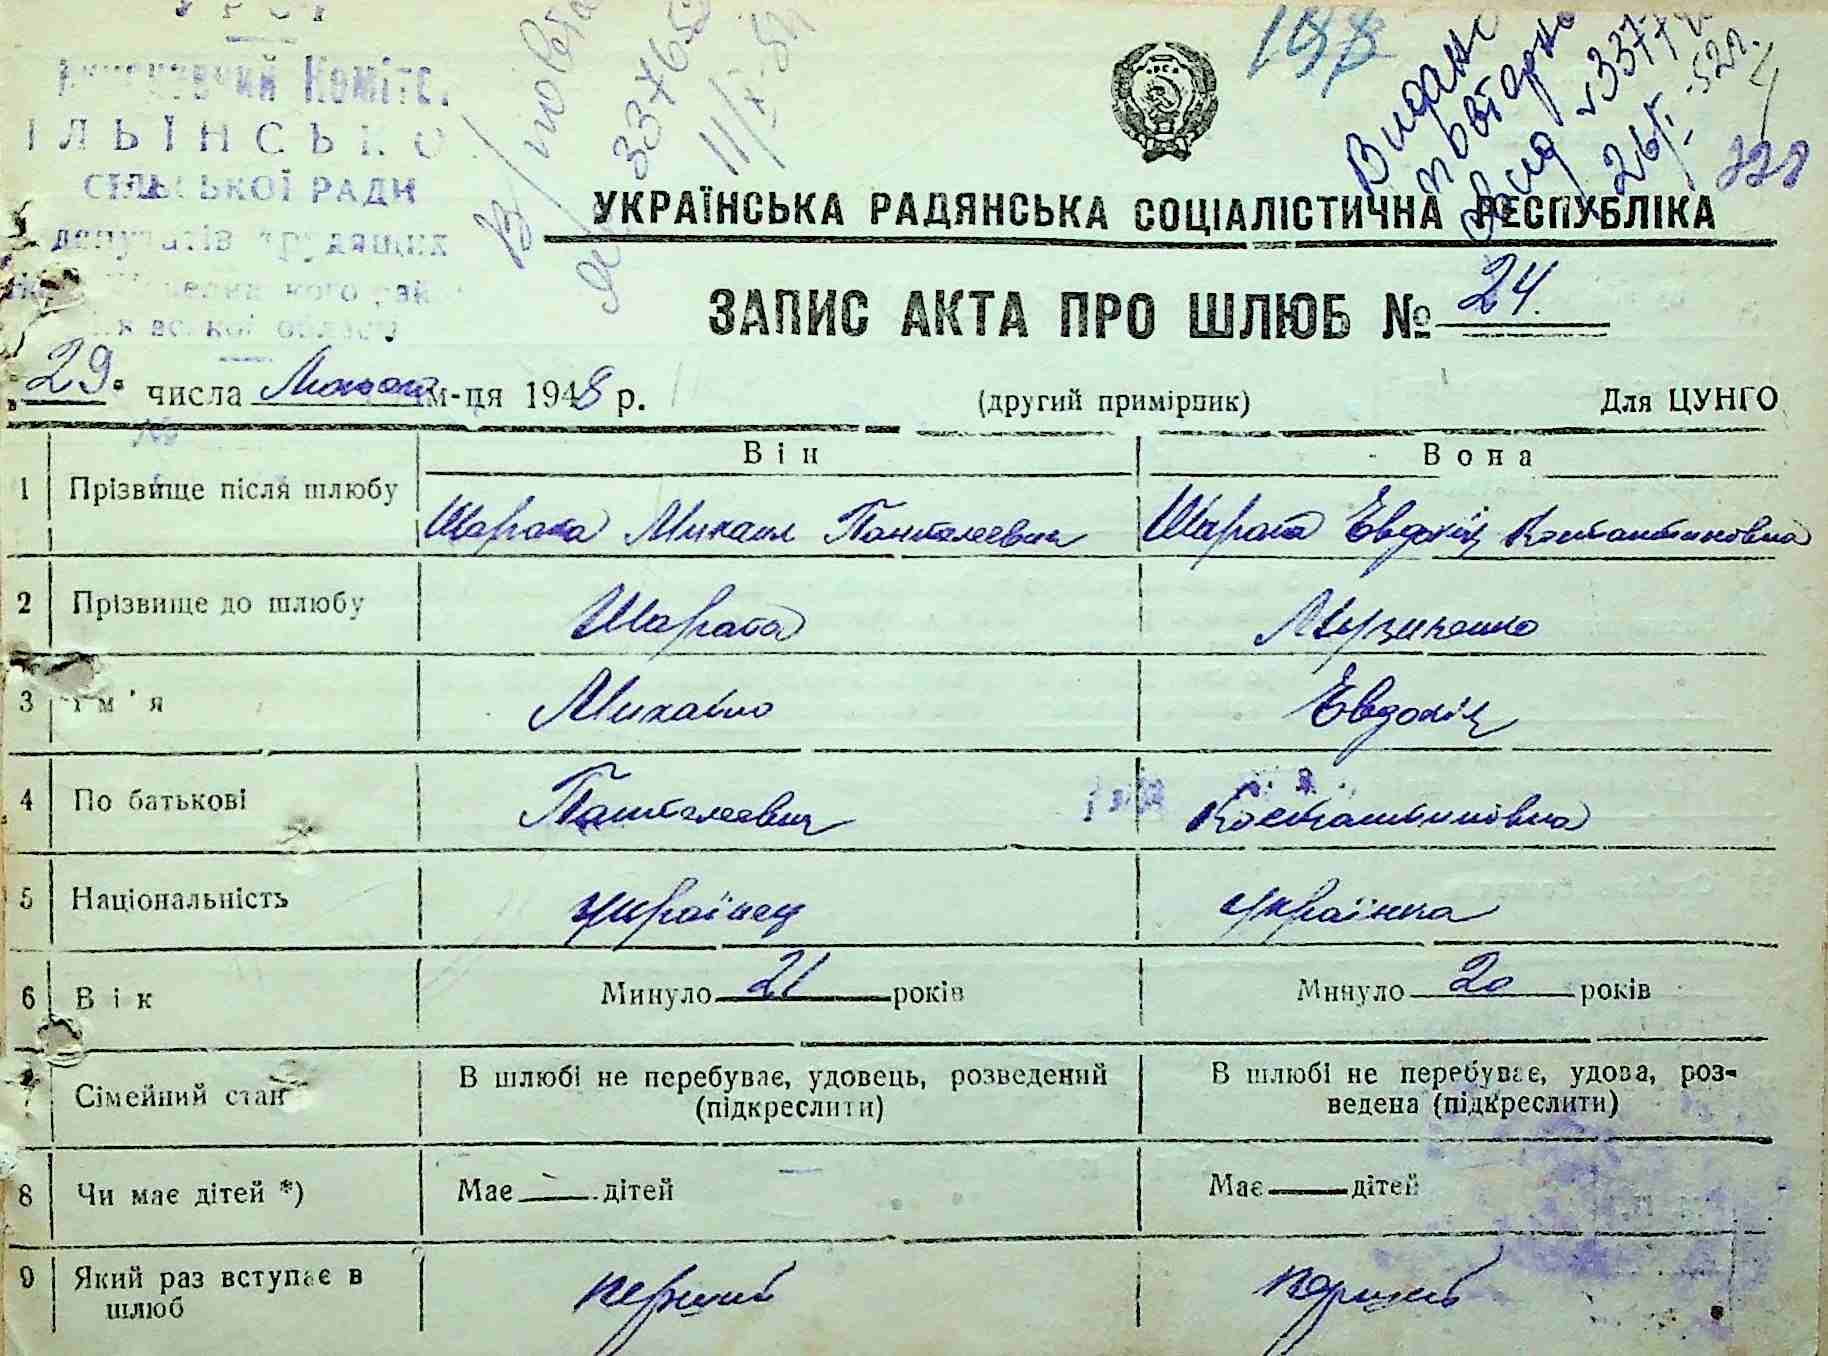 УРСР
Виконавчий Коміте.
ІЛЬЇНСЬКО
СІЛЬСЬКОЇ РАДИ
депутатів трудящих
області
в/повторно
337652
11/X-51
198
Видано
повторно
свид
26/X-52п.
328
УКРАЇНСЬКА РАДЯНСЬКА СОЦІАЛІСТИЧНА РЕСПУБЛІКА
ЗАПИС АКТА ПРО ШЛЮБ № 24.
29. числа Лютого м-ця 1948 р. (другий примірник) Для ЦУНГО
Він Вона
1 Прізвище після шлюбу Шарата Михаил Пантелеевич Шарата Евдокія Константиновна
2 Прізвище до шлюбу Шарата Музиченко
3 Ім'я Михайло Евдокія
4 По батькові Пантелеевич Костантиновна
5 Національність українец українка
6 Вік Минуло 21 років Минуло 20 років
7 Сімейний стан В шлюбі не перебуває, удовець, розведений (підкреслити) В шлюбі не перебуває, удова, розведена (підкреслити)
8 Чи має дітей *) Має — дітей Має — дітей
9 Який раз вступає в шлюб перший перший